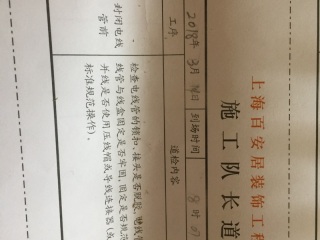 上海百安居装饰工程
施工队长道
2018年3月 日 到场时间 8时
工序 道检内容
封闭电线管前
检查电线管的锁扣、接头是否脱胶、
线管与线盒固定是否牢固,固定是否规范
并线是否使用压线帽或导线连接器(
标准规范操作)。